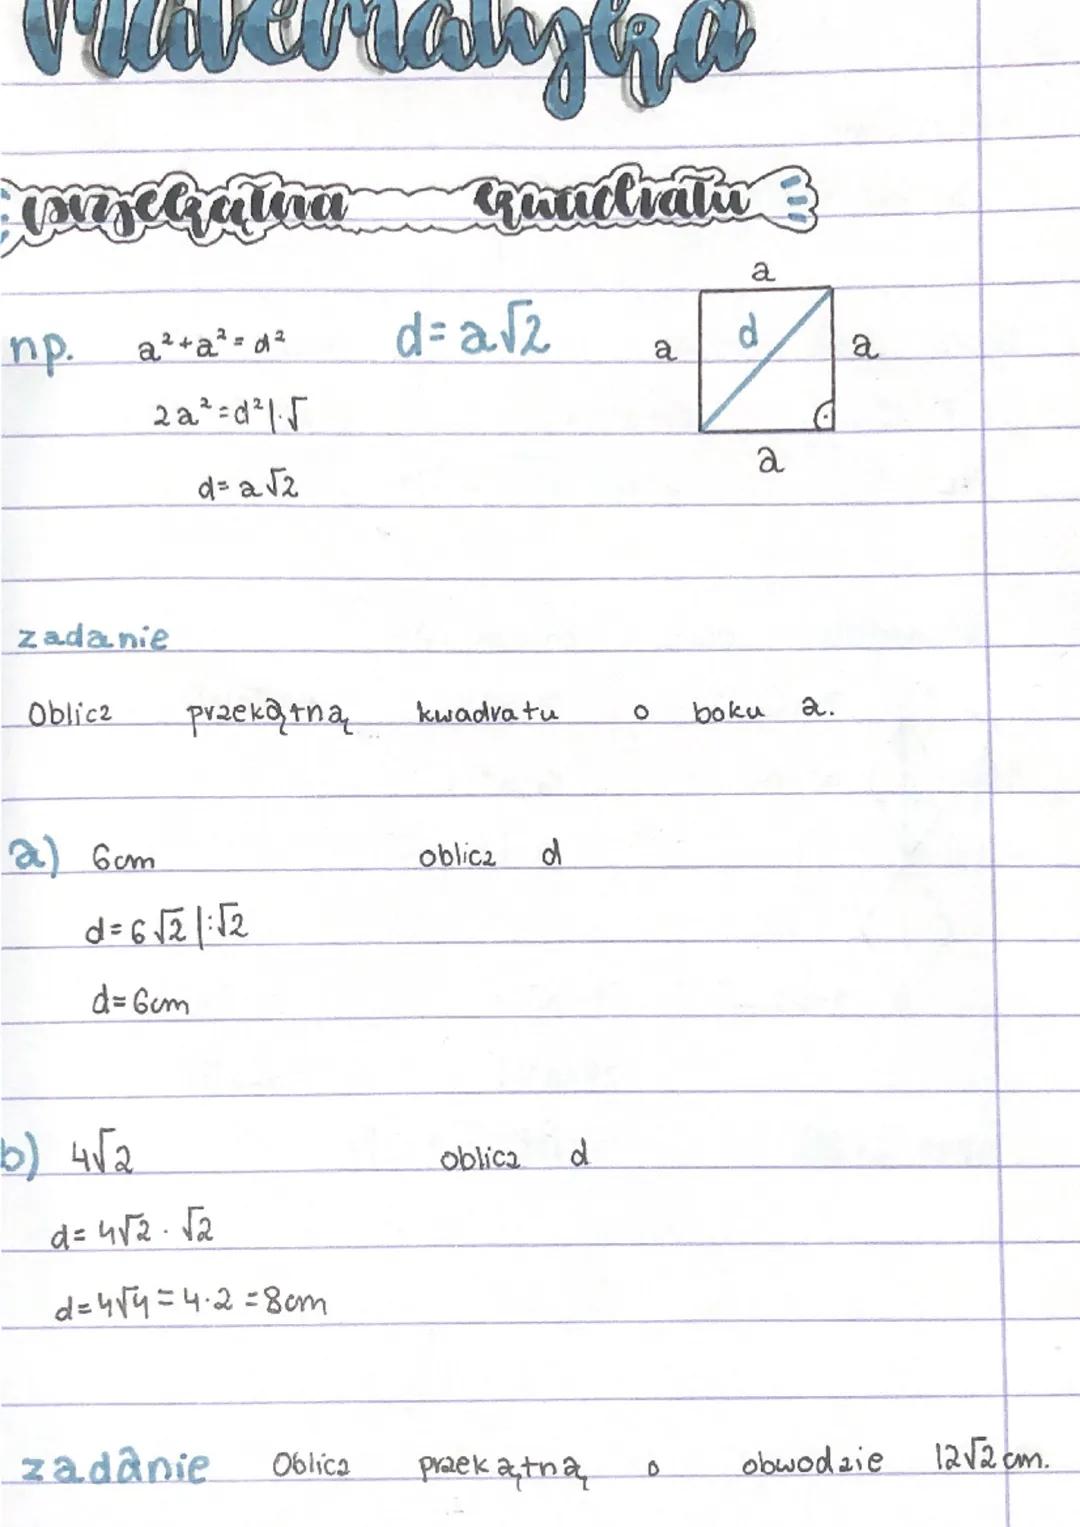 Matematyka
przekątna kwadratu
a
np. a²+a²=d² d=a√2 a d a
2a²=d²|·√
a
d=a√2
zadanie
Oblicz przekątną kwadratu o boku a.
a) 6cm oblicz d
d=6√2 |:√2
d=6cm
b) 4√2 oblicz d
d=4√2·√2
d=4√4=4·2=8cm
zadanie Oblicz przekątną o obwodzie 12√2cm.